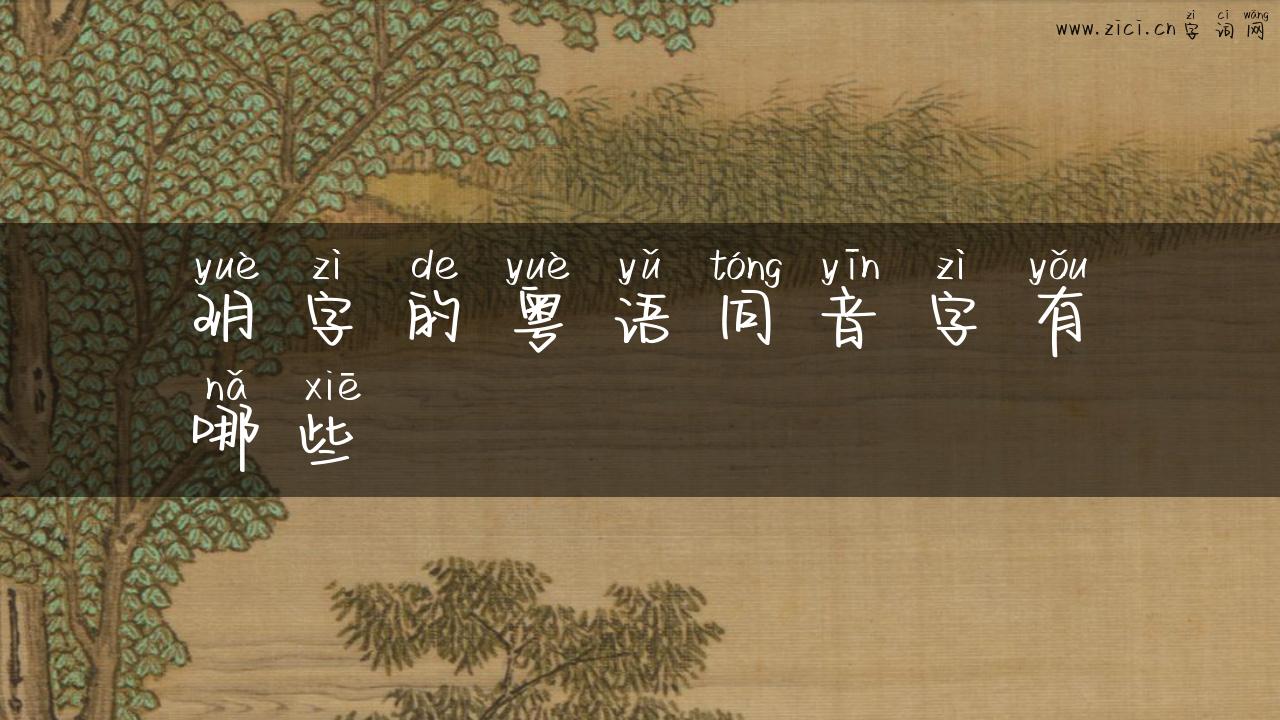 zì cí wǎng
www.zici.cn 字词网
yuè zì de yuè yǔ tóng yīn zì yǒu
玥字的粤语同音字有
nǎ xiē
哪些